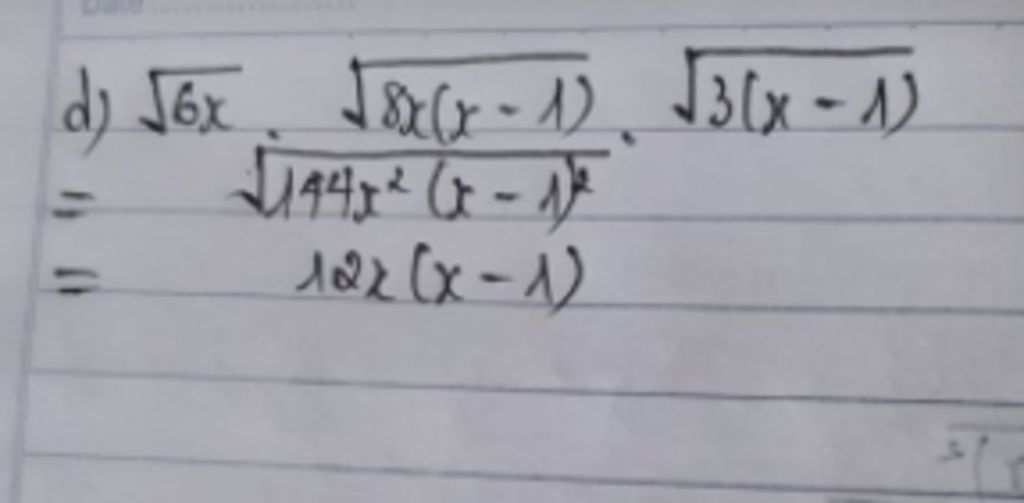 Date
d) √6x . √8x(x - 1) . √3(x - 1)
= √144x² (x - 1)²
= 12x (x - 1)